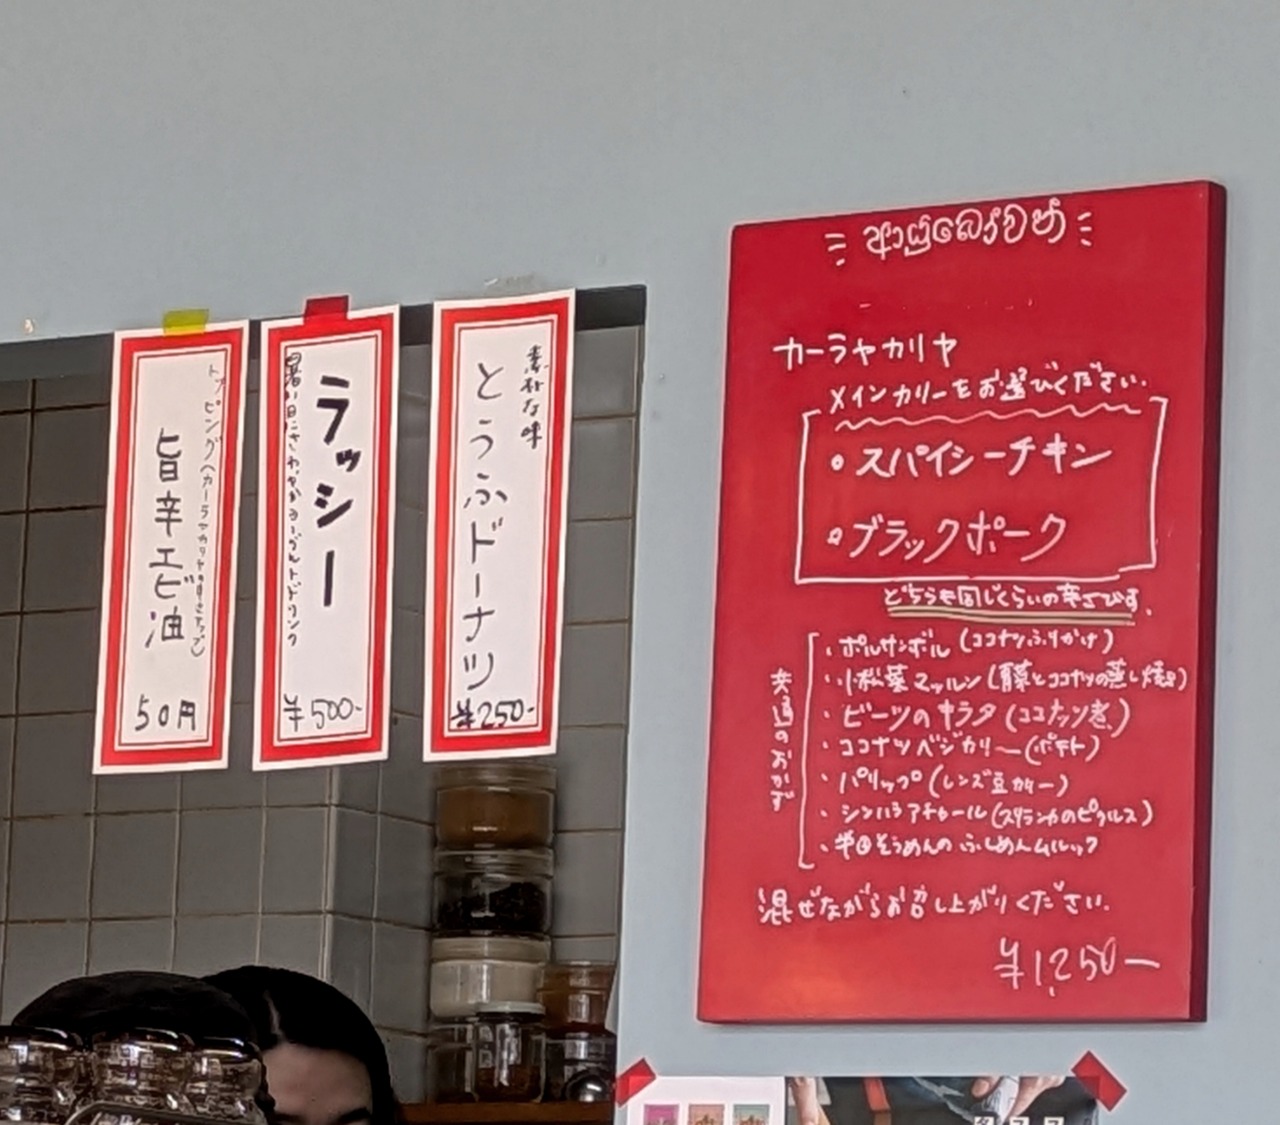 トッピング(カーラヤカリヤ
旨辛エビ油
50円
ラッシー
暑い日にさわやかヨーグルトドリンク
¥500-
素朴な味
とうふドーナツ
¥250-
ආයුබෝවන්
カーラヤカリヤ
メインカリーをお選びください.
・スパイシーチキン
・ブラックポーク
どちらも同じくらいの辛さです.
共通のおかず
・ポルサンボル(ココナツふりかけ)
・小松菜マッルン(青菜とココナツの蒸し焼き)
・ビーツのキラタ(ココナッツ煮)
・ココナツベジカリー(ポテト)
・パリップ(レンズ豆カリー)
・シンハラアチャール(スリランカのピクルス)
・半田そうめんの
混ぜながらお召し上がりください.
¥1,250-